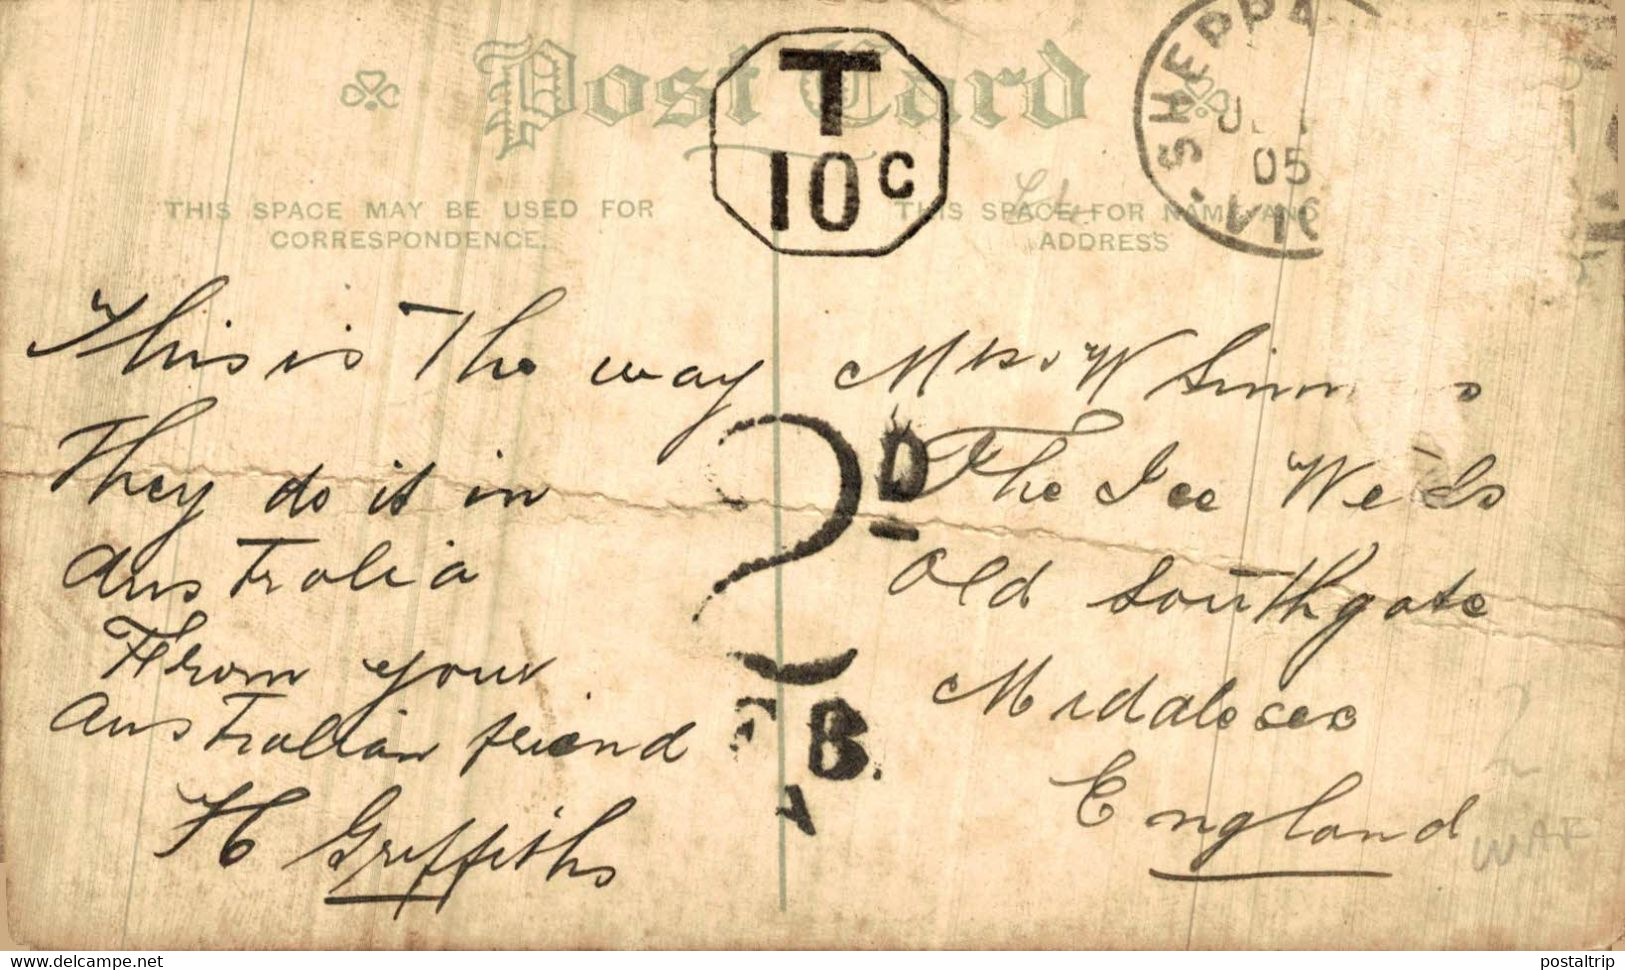 Post Card
T
10 C
SHEPPA
05
VIC
THIS SPACE MAY BE USED FOR
CORRESPONDENCE.
THIS SPACE FOR NAME AND
ADDRESS
This is The way
They do it in
Australia
From your
Australian friend
H Griffiths
2D
B.
Mrs W
The Ice Wells
Old Southgate
Middlesex
England
WAF
delcampe.net
postaltrip